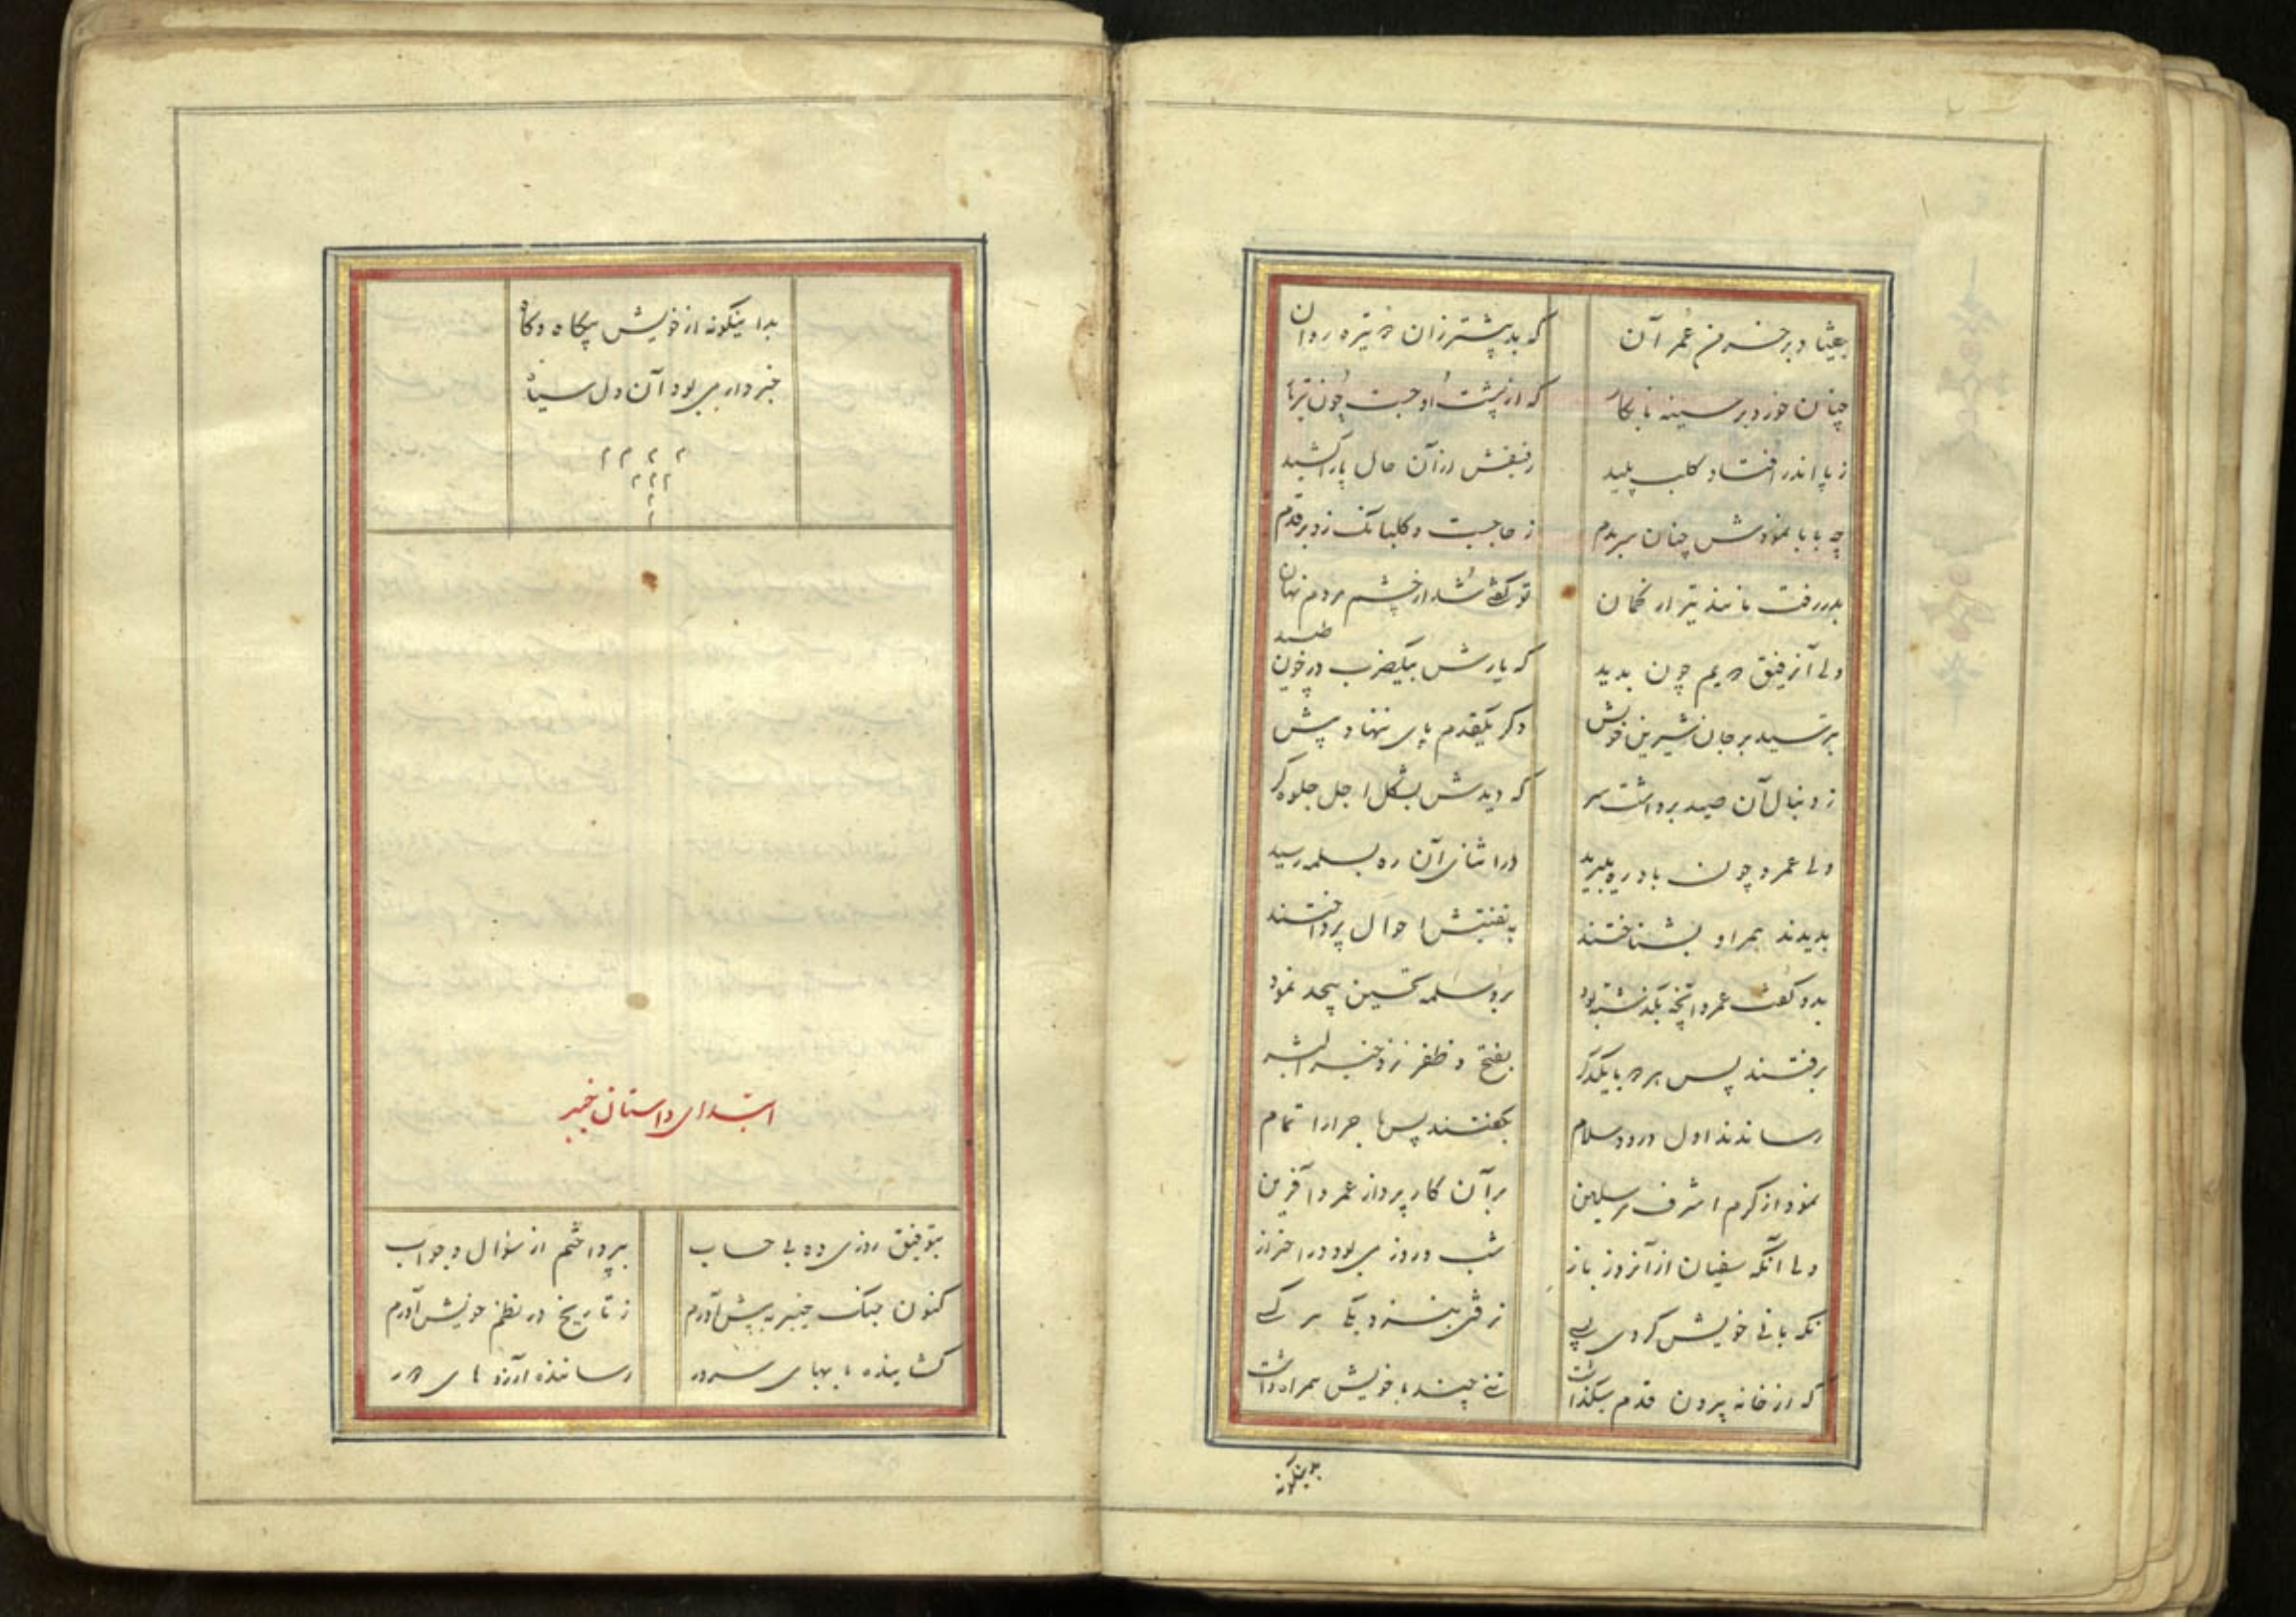 که بد پیشتر زان دو تیره روان
چنان خورد بر سینه نابکار که از پشت او جست چون
ز پا اندر افتاد کلب پلید رفیقش از آن حال پا را کشید
چنان بیردم ز جا جست و کلبانک زد بر قدم
بدر رفت مانند تیر از کمان تو گفتی شد از چشم مردم نهان
ولی آن رفیق دویم چون بدید که یارش بیکضرب در خون طپید
بترسید بر جان شیرین خویش دکر یکقدم پای ننهاد پیش
ز دنبال آن صید برداشت سر که دیدش بشکل اجل جلوه کر
ولی عمرو چون باد ره میبرید در اثنای آن ره بسلمه رسید
بدیدند هم را و بشناختند به تفتیش احوال پرداختند
بدو کفت عمرو آنچه بکذشته بود برو سلمه تحسین بیحد نمود
برفتند پس هر دو با یکدکر بفتح و ظفر نزد خیر البشر
رساندند اول درود و سلام بکفتند پس ماجرا را تمام
نمود از کرم اشرف مرسلین بر آن کار پرداز عمرو آفرین
ولی آنکه سفیان از آنروز باز شب و روز می بود در احتراز
نکهبانی خویش کردی بسی نرفتی بنزدیک هر کسی
که از خانه بیرون قدم میکذاشت تنی چند با خویش همراه داشت
بدینکونه
بدا ینکونه از خویش بیکاه و کاه
خبردار می بود آن دل سیاه
ابتدای داستان خیبر
بتوفیق روزی ده بی حساب بپرداختم از سؤال و جواب
کنون جنک خیبر به پیش آورم ز تاریخ در نظم خویش آورم
کشاینده بابهای سرور رساننده آرزوهای دور